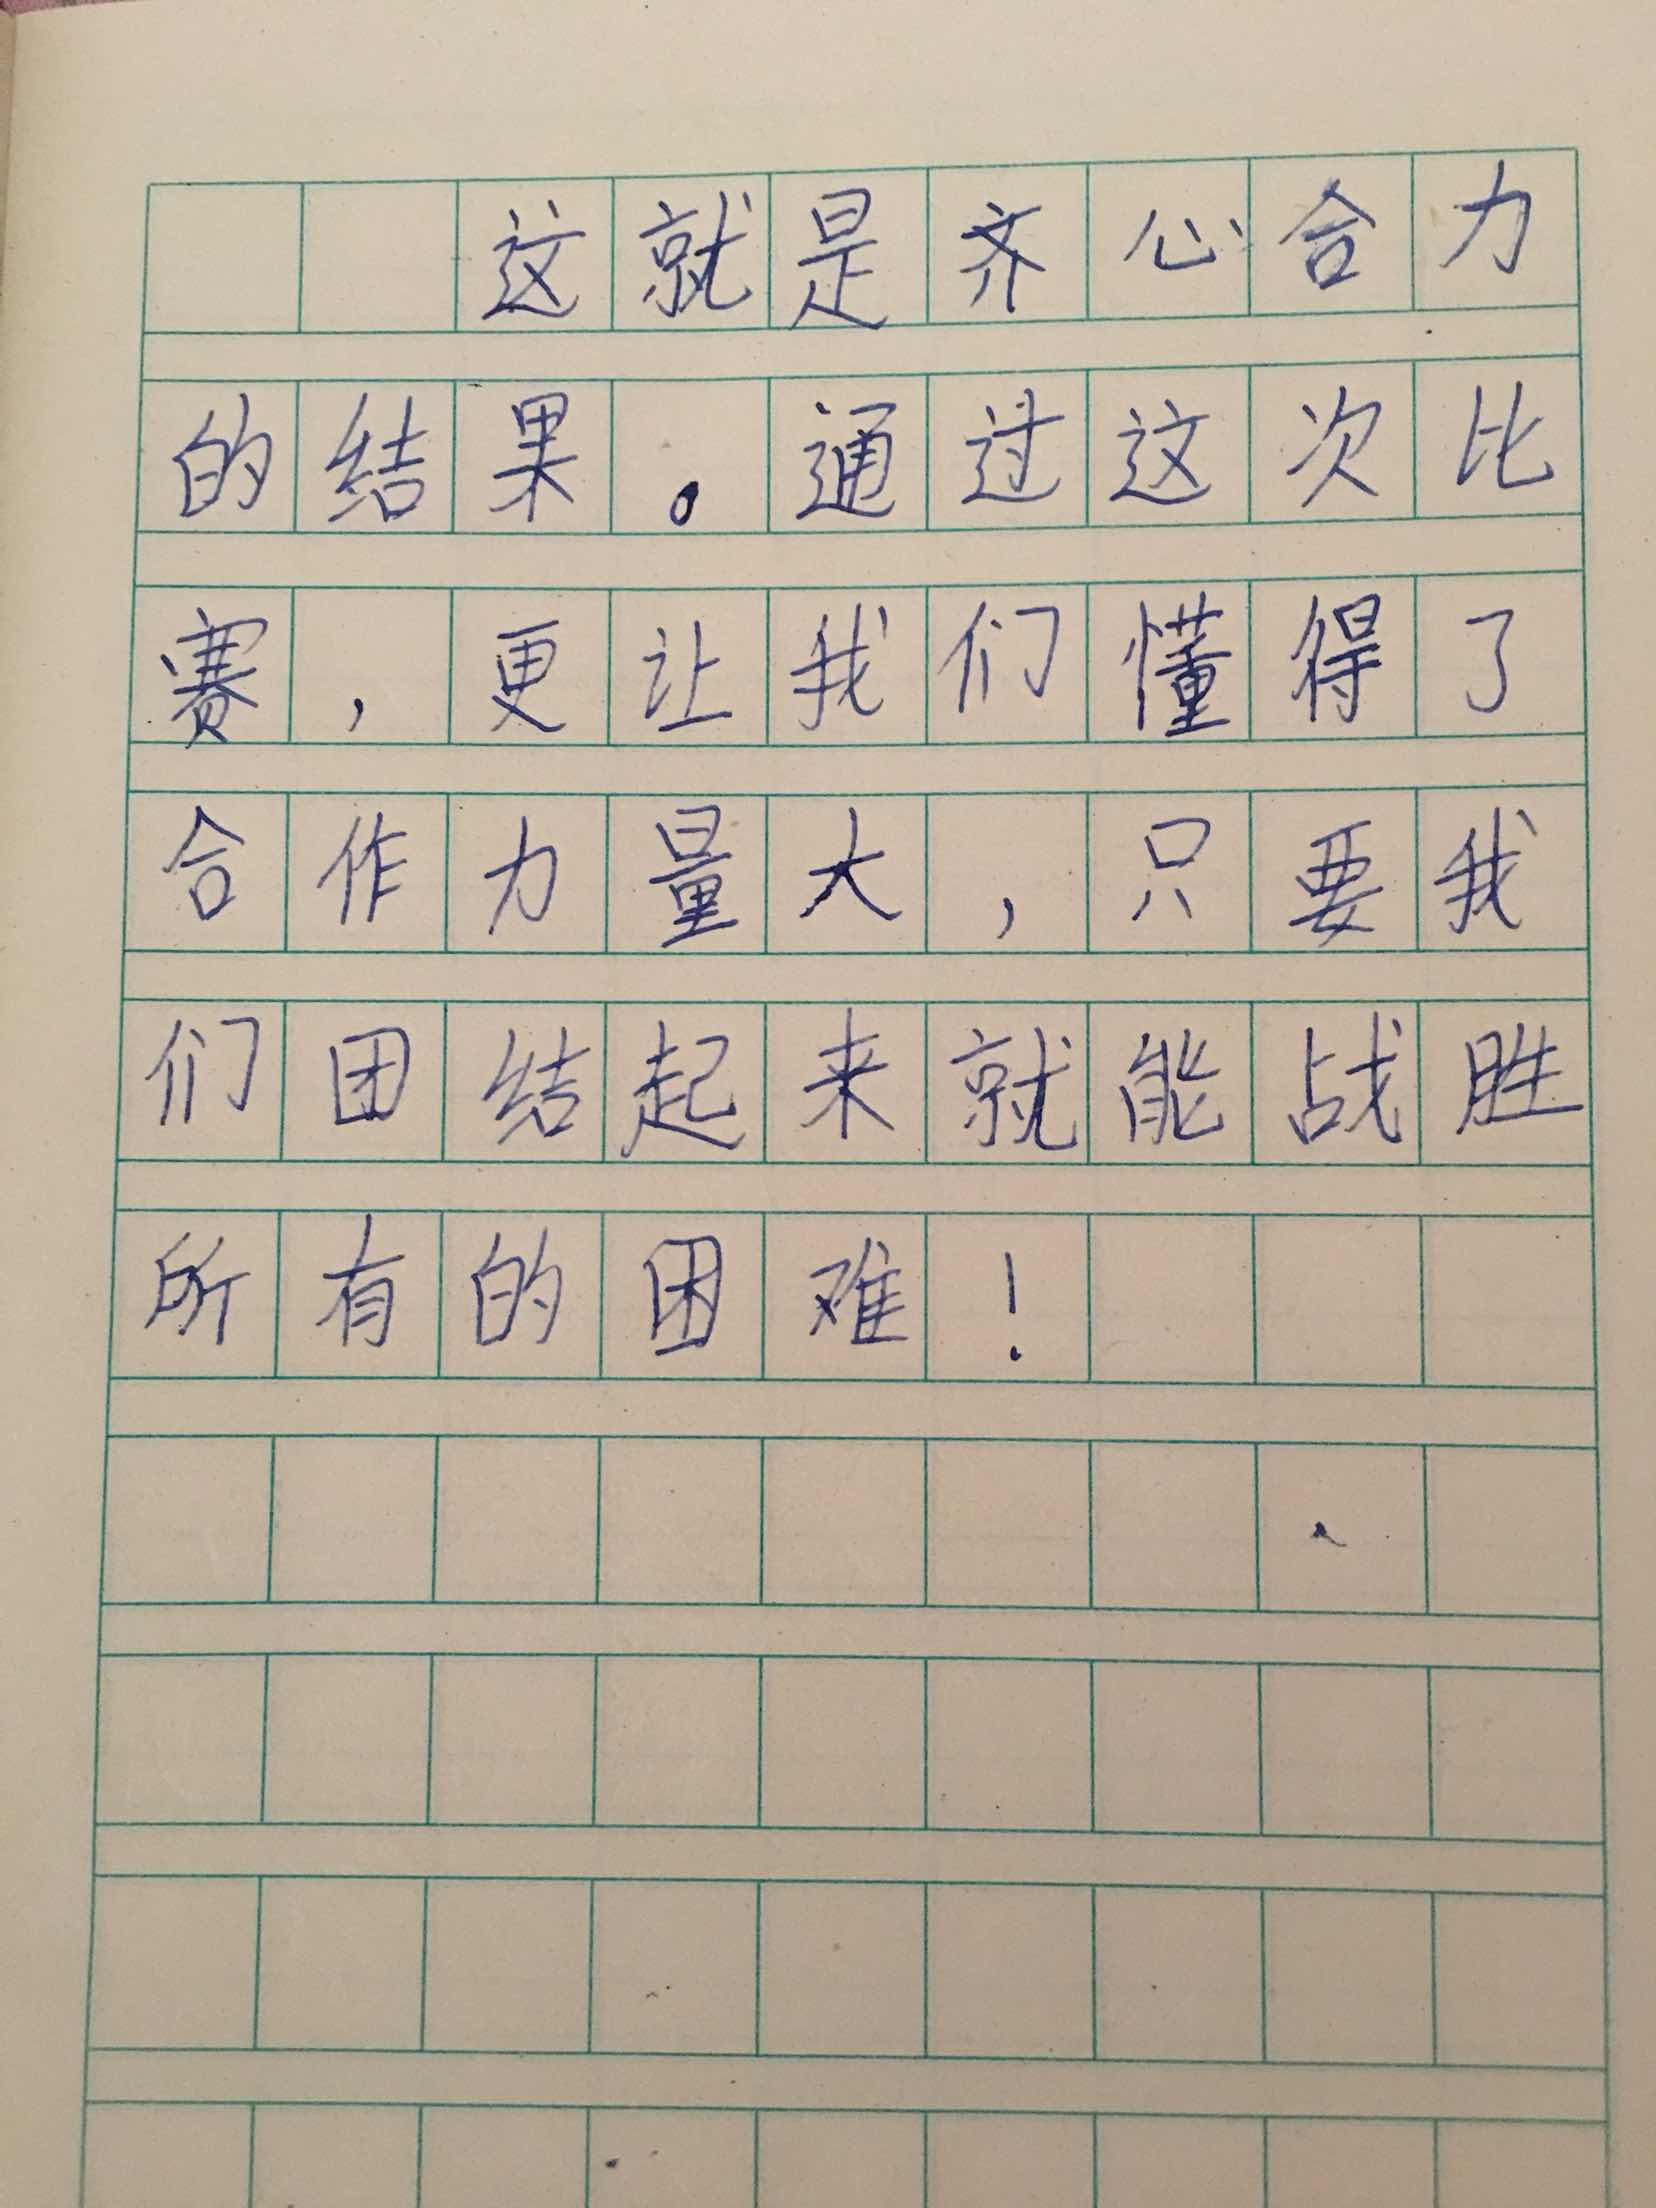 这就是齐心合力
的结果。通过这次比
赛，更让我们懂得了
合作力量大，只要我
们团结起来就能战胜
所有的困难！